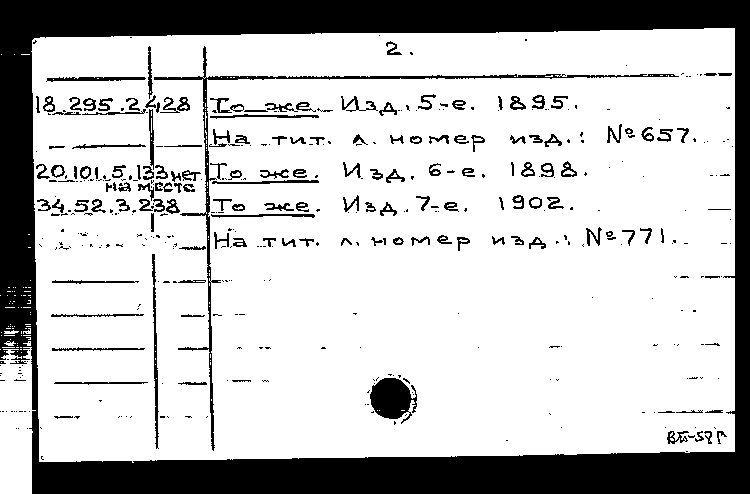 2.
18.295.2.428 То же. Изд. 5-е. 1895.
На тит. л. номер изд.: №657.
20.101.5.133 нет То же. Изд. 6-е. 1898.
на месте
34.52.3.238 То же. Изд. 7-е. 1902.
На тит. л. номер изд.: №771.